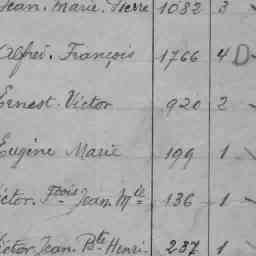 Jean. Marie. Pierre 1032 3
Alfred. François 1766 4 D
Ernest. Victor 920 2
Eugène Marie 199 1
Victor. Fçois Jean. Mie 136 1
Victor Jean. Bte Henri. 237 1